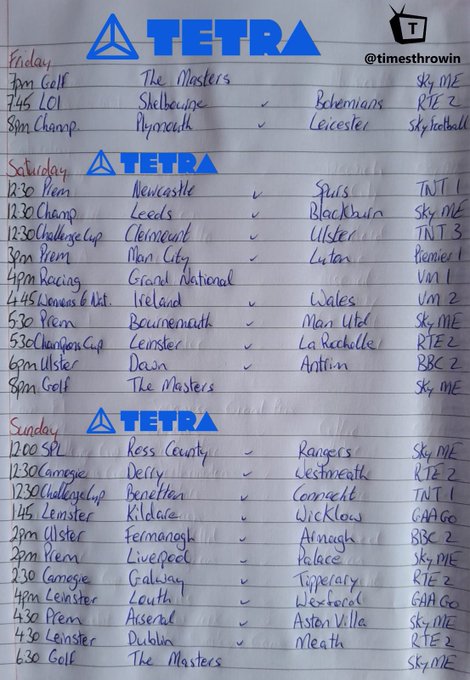 TETRA
T
@timesthrowin
Friday
7pm Golf The Masters Sky ME
7.45 LOI Shelbourne v Bohemians RTE 2
8pm Champ. Plymouth v Leicester Sky Football
Saturday TETRA
12:30 Prem Newcastle v Spurs TNT 1
12:30 Champ Leeds v Blackburn Sky ME
12:30 Challenge Cup Clermount v Ulster TNT 3
3pm Prem Man City v Luton Premier 1
4pm Racing Grand National VM 1
4.45 Womens 6 Nat. Ireland v Wales VM 2
5:30 Prem Bournemouth v Man Utd Sky ME
5:30 Champions Cup Leinster v La Rochelle RTE 2
6pm Ulster Down v Antrim BBC 2
8pm Golf The Masters Sky ME
Sunday TETRA
12:00 SPL Ross County v Rangers Sky ME
12:30 Camogie Derry v Westmeath RTE 2
12:30 Challenge Cup Benetton v Connacht TNT 1
1.45 Leinster Kildare v Wicklow GAA GO
2pm Ulster Fermanagh v Armagh BBC 2
2pm Prem Liverpool v Palace Sky ME
2:30 Camogie Galway v Tipperary RTE 2
4pm Leinster Louth v Wexford GAA GO
4.30 Prem Arsenal v Aston Villa Sky ME
4.30 Leinster Dublin v Meath RTE 2
6:30 Golf The Masters Sky ME